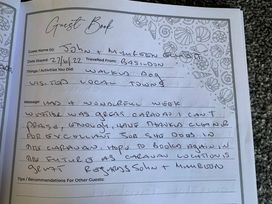 Guest Book
Guest Name (s): JOHN + MAUREEN
Date Stayed: 27/10/22 Travelled From: BASILDON
Things / Activities You Did: WALKED DOG
VISITED LOCAL TOWNS
Message: HAD A WONDERFUL WEEK
WEATHER WAS GREAT CARAVAN I CAN'T
PRAISE ENOUGH, HAVE THANKED CLEANER
FOR EXCELLENT JOB SHE DOES IN
THE CARAVAN. HOPE TO BOOK AGAIN IN
THE FUTURE AS CARAVAN LOCATION IS
GREAT REGARDS JOHN + MAUREEN
Tips / Recommendations For Other Guests: